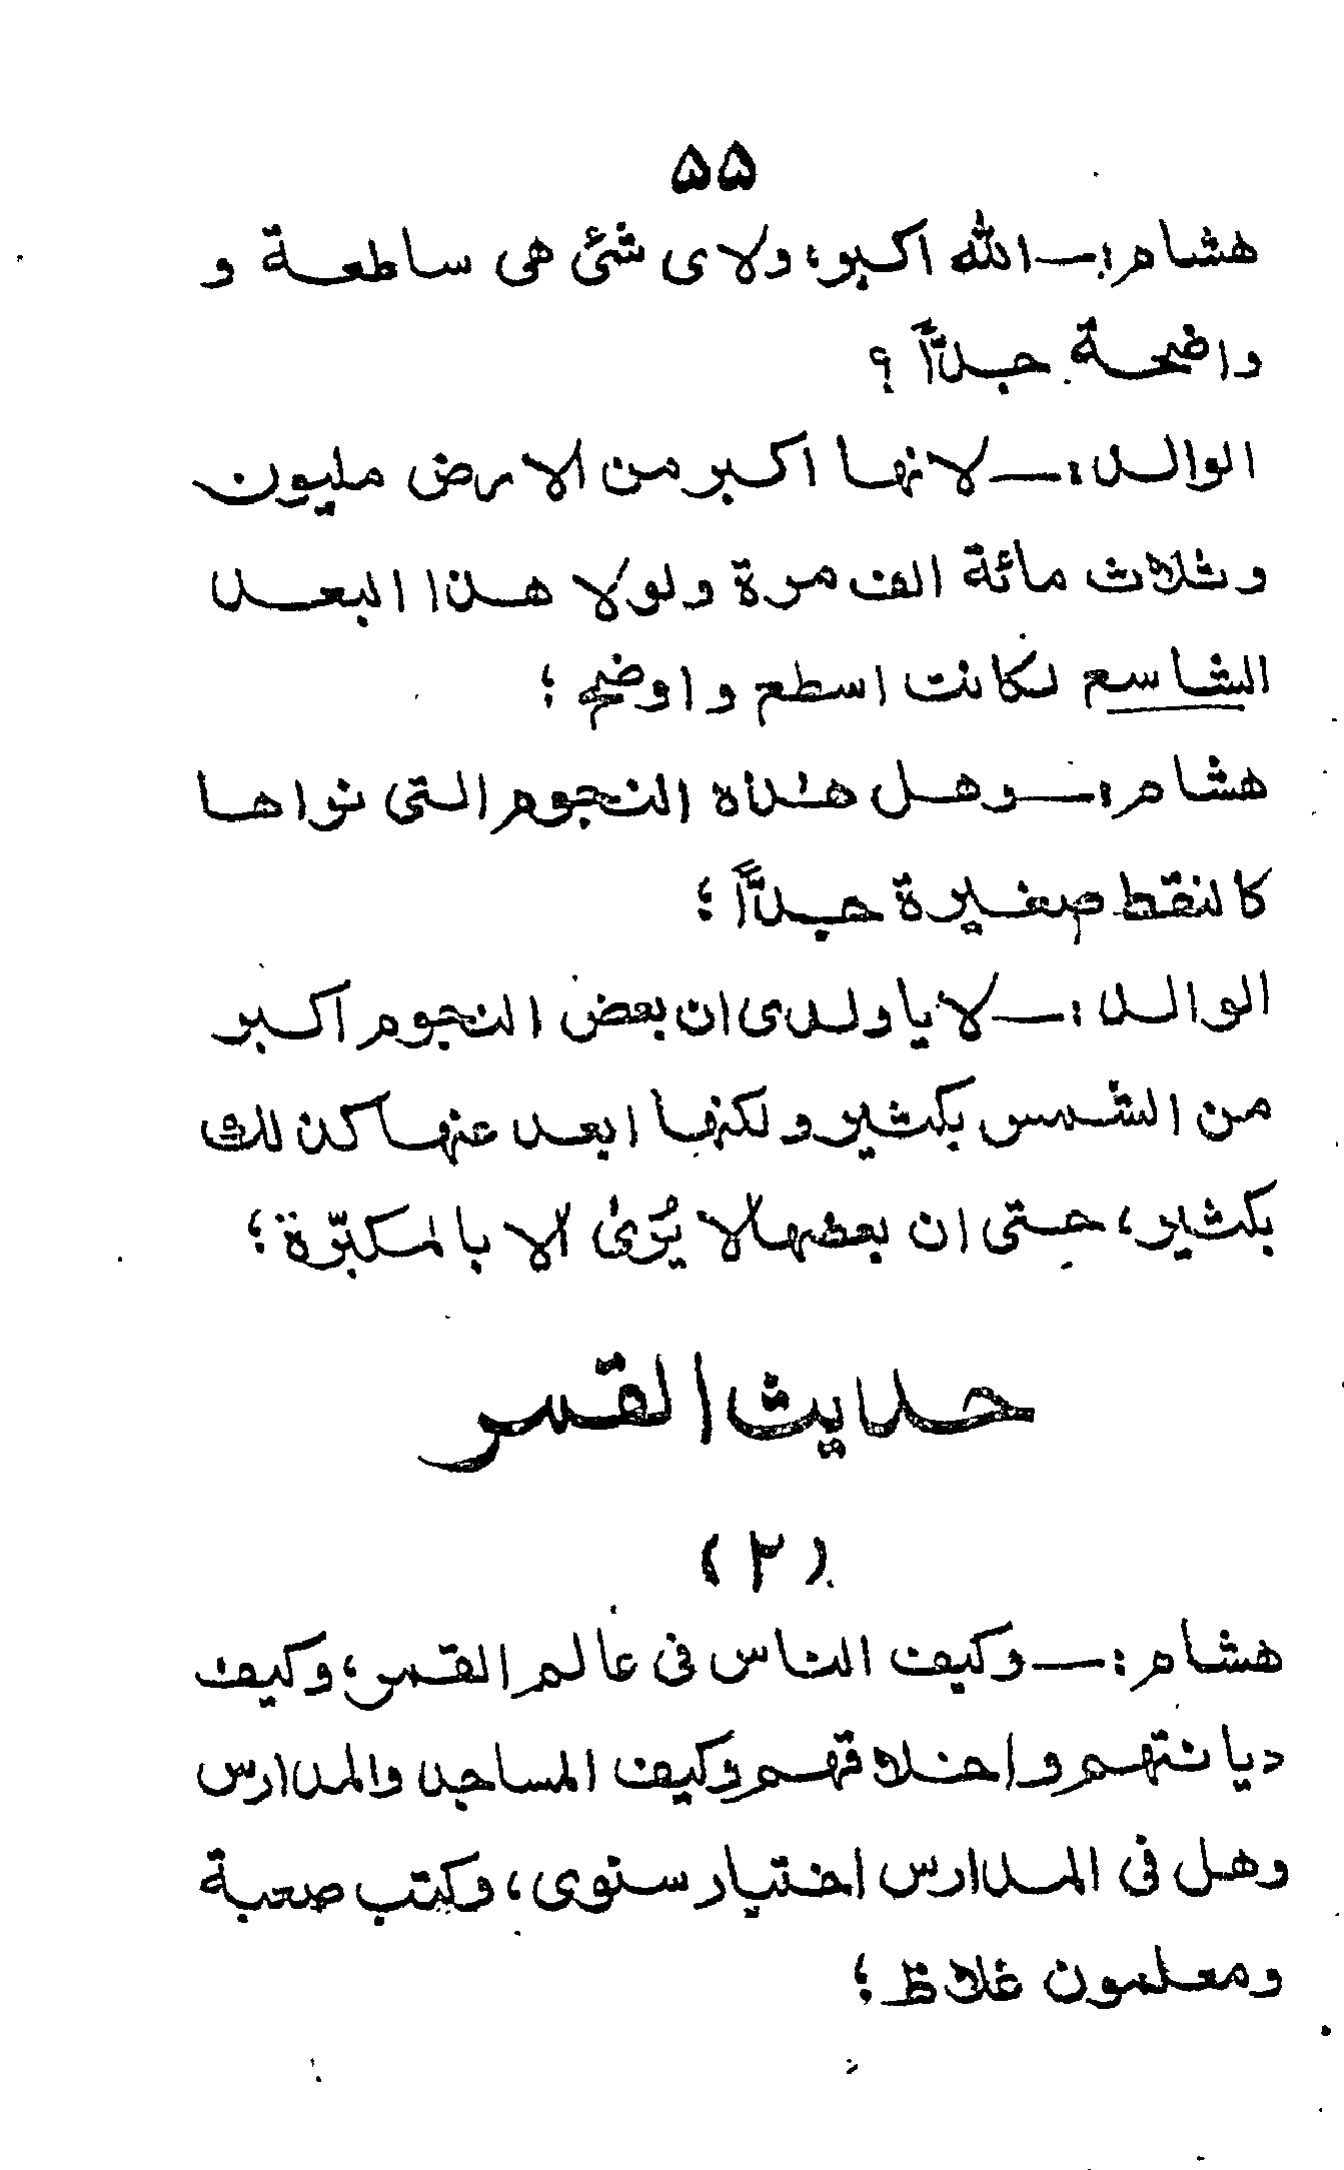 ۵۵
هشام:ـ الله اكبر، ولاى شئ هى ساطعة و
واضحة جدًّا ؟
الوالد:ـ لانها اكبر من الارض مليون
وثلاث مائة الف مرة ولولا هذا البعد
الشاسع لكانت اسطع واوضح ؛
هشام:ـ وهل هذه النجوم التى نراها
كالنقط صغيرة جدًّا ؛
الوالد:ـ لا يا ولدى ان بعض النجوم اكبر
من الشمس بكثير ولكنها ابعد عنها كذلك
بكثير، حتى ان بعضها لا يُرَىٰ الا بالمكبّرة ؛
حديث القمر
(۲)
هشام:ـ وكيف الناس فى عالم القمر، وكيف
ديانتهم واخلاقهم وكيف المساجد والمدارس
وهل فى المدارس اختيار سنوى، وكتب صعبة
ومعلمون غلاظ ؛